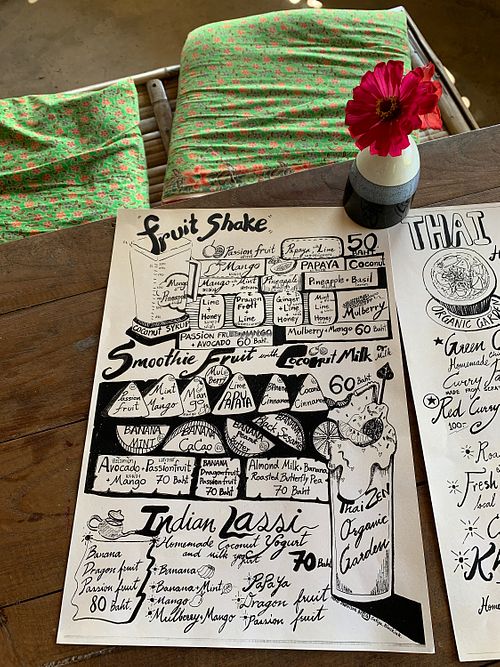 Fruit Shake
50 BAHT
Passion fruit
Papaya + Lime
Mango
PAPAYA
Coconut
Mango + Mint
Pineapple
Pineapple + Basil
Mango
Pineapple
Lime + Honey
Dragon Fruit Lime
Ginger + Lime + Honey
Mint Lime Honey
Mulberry
COCONUT SYRUP
PASSION FRUIT + MANGO + AVOCADO 60 Baht.
Mulberry + Mango 60 Baht
Smoothie Fruit with Coconut Milk or Milk
60 Baht
Passion Fruit
Mint Mango
Mango
Mulberry
Lime PAPAYA
Banana Cinnamon
Coconut Cinnamon
BANANA MINT
BANANA CaCao
BANANA Peanut Butter
Black Sesame
Avocado + Passionfruit + Mango 70 Baht
BANANA Dragonfruit Passion fruit 70 Baht.
Almond Milk + Banana Roasted Butterfly Pea 70 Baht
Thai ZEN Organic Garden
Indian Lassi
Homemade Coconut Yogurt and milk yogurt
70 Baht
Banana
Dragon fruit
Passion fruit
80 Baht.
Banana
Banana + Mint
Mango
Mulberry + Mango
PaPaYa
Dragon fruit
Passion fruit
THAI
ORGANIC GARDEN
Green C
Homemade
Curry
MADE FROM
Red Curry
100.-
Roa
Fresh
local
Kh
Hom